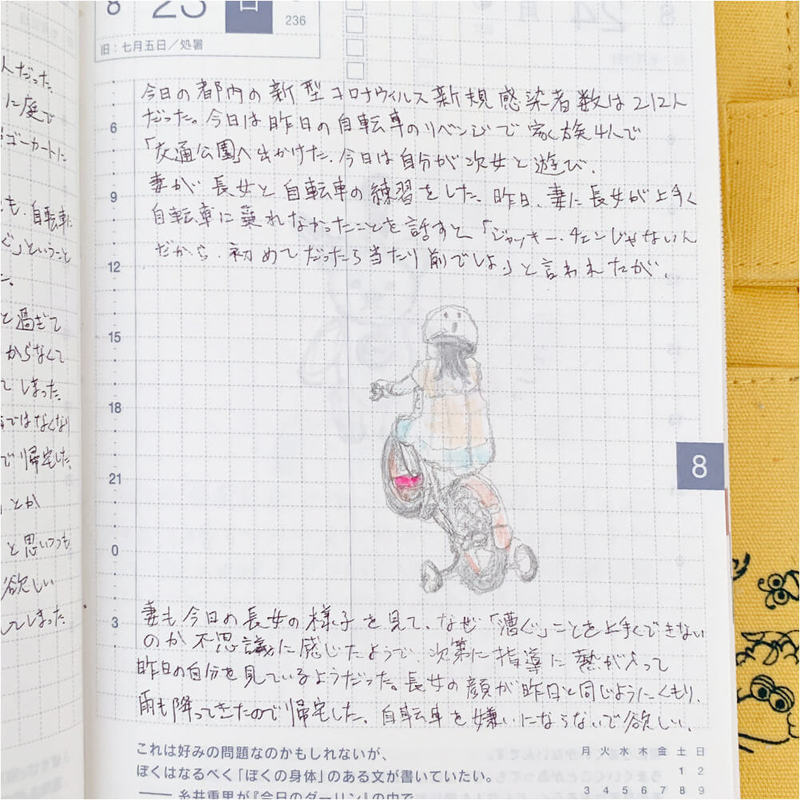 8
23
日
236
旧：七月五日／処暑
今日の都内の新型コロナウィルス新規感染者数は212人
だった。今日は昨日の自転車のリベンジで家族4人で
「交通公園」へ出かけた。今日は自分が次女と遊び、
妻が長女と自転車の練習をした。昨日、妻に長女が上手く
自転車に乗れなかったことを話すと「ジャッキー・チェンじゃないん
だから、初めてだったら当たり前でしょ」と言われたが、
6
9
12
15
18
21
0
3
妻も今日の長女の様子を見て、なぜ「漕ぐ」ことを上手くできない
のか不思議に感じたようで次第に指導に熱が入って
昨日の自分を見ているようだった。長女の顔が昨日と同じようにくもり、
雨も降ってきたので帰宅した。自転車を嫌いにならないで欲しい。
8
これは好みの問題なのかもしれないが、
ぼくはなるべく「ぼくの身体」のある文が書いていたい。
―― 糸井重里が『今日のダーリン』の中で
月 火 水 木 金 土 日
1 2
3 4 5 6 7 8 9
人だった。
に庭で
ゴーカートに
も、自転車に
ぐ」ということ
た。
と過ぎて
からなくて
てしまった。
ではなくなり
で帰宅した。
とか
と思いつつも
欲しい
してしまった